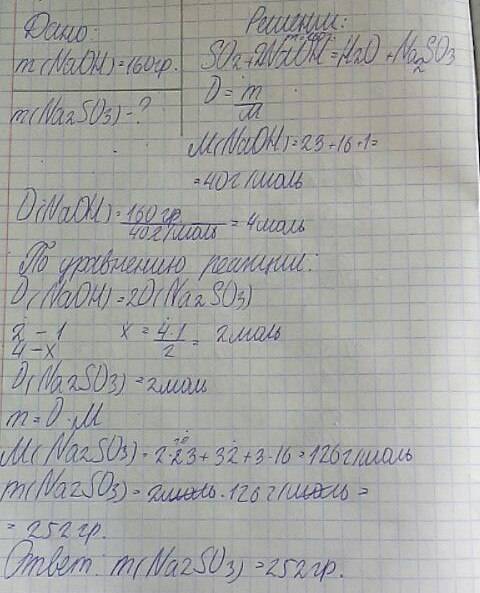 Дано:
m(NaOH)=160гр.
m(Na2SO3)-?
Решение:
m=160г.
SO2+2NaOH=H2O+Na2SO3
D=m/M
M(NaOH)=23+16+1=
=40г/моль
D(NaOH)=160гр/40г/моль=4моль
По уравнению реакции:
D(NaOH)=2D(Na2SO3)
2-1
4-x
x=4·1/2=2моль
D(Na2SO3)=2моль
m=D·M
M(Na2SO3)=2·23+32+3·16=126г/моль
m(Na2SO3)=2моль·126г/моль=
=252гр.
Ответ: m(Na2SO3)=252гр.